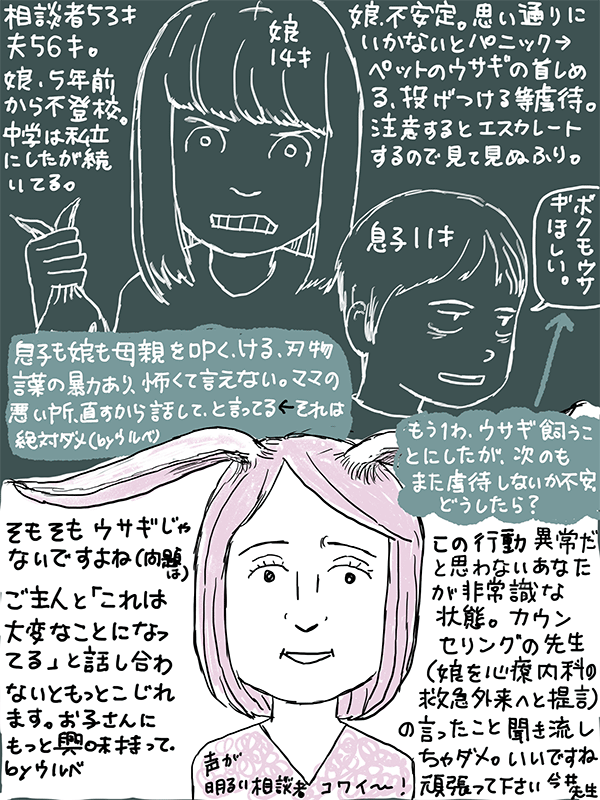 相談者53才
夫56才。
娘、5年前
から不登校。
中学は私立
にしたが続
いてる。
娘
14才
娘、不安定。思い通りに
いかないとパニック→
ペットのウサギの首しめ
る、投げつける等虐待。
注意するとエスカレート
するので見て見ぬふり。
息子11才
ボクモウサ
ギほしい。
息子も娘も母親を叩く、ける、刃物
言葉の暴力あり、怖くて言えない。ママの
悪い所、直すから話して、と言ってる←それは
絶対ダメ(byウルベ)
もう1わ、ウサギ飼うこ
とにしたが、次のも
また虐待しないか不安
どうしたら?
そもそもウサギじゃ
ないですよね(問題は)
ご主人と「これは
大変なことになっ
てる」と話し合わ
ないともっとこじれ
ます。お子さんに
もっと興味持って.
byウルベ
この行動異常だ
と思わないあなた
が非常識な
状態。カウン
セリングの先生
(娘を心療内科の
救急外来へと提言)
の言ったこと聞き流し
ちゃダメ。いいですね
頑張って下さい 今井先生
声が
明るい相談者 コワイ〜!